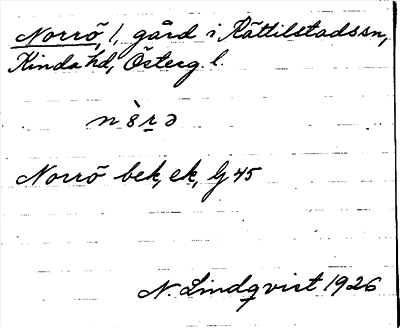 Norrö, 1, gård i Kättilstadssn,
Kinda hd, Österg. l.
Norrö bek, ek, G 45
N. Lindqvist 1926